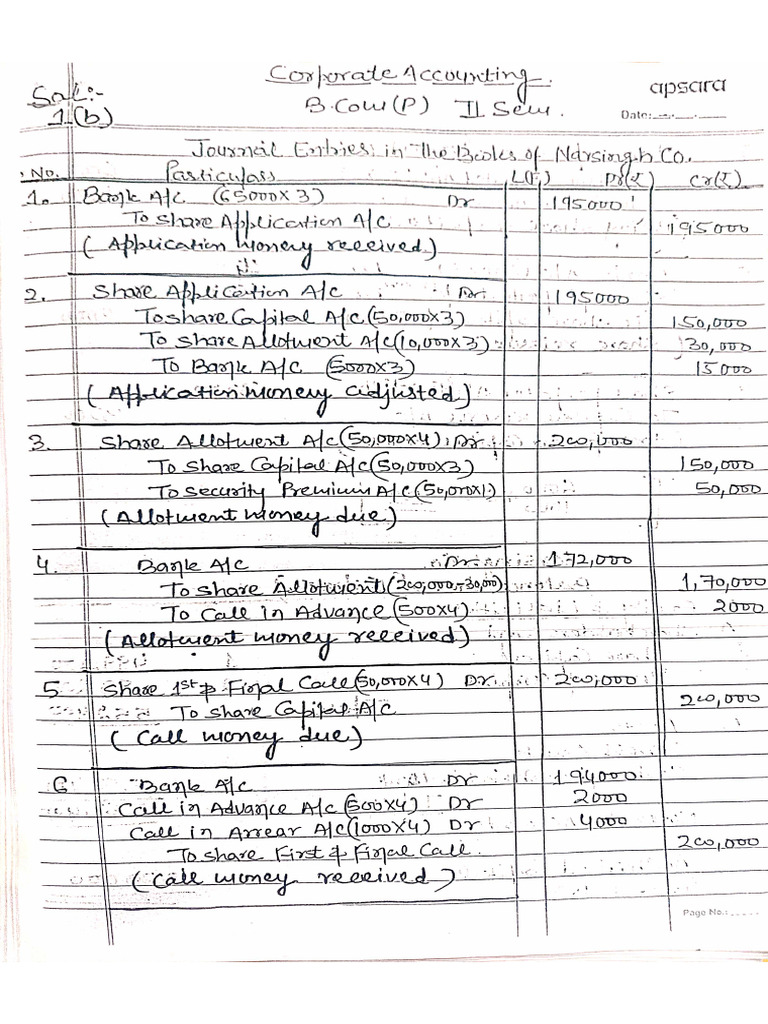 Corporate Accounting
apsara
Sol:-
B.Com(P) II Sem.
Date:
1(b)
Journal Entries in the Books of Narsingh Co.
No. Particulars L(F) Dr(₹) Cr(₹)
1. Bank A/c (65000x3) Dr 195000
To Share Application A/c 195000
(Application money received)
2. Share Application A/c Dr 195000
To Share Capital A/c (50,000x3) 150,000
To Share Allotment A/c (10,000x3) 30,000
To Bank A/c (5000x3) 15000
(Application money adjusted)
3. Share Allotment A/c (50,000x4) Dr 200,000
To Share Capital A/c (50,000x3) 150,000
To Security Premium A/c (50,000x1) 50,000
(Allotment money due)
4. Bank A/c Dr 172,000
To Share Allotment (200,000-30,000) 1,70,000
To Call in Advance (500x4) 2000
(Allotment money received)
5 Share 1st & Final Call (50,000x4) Dr 200,000
To Share Capital A/c 200,000
(Call money due)
6 Bank A/c Dr 194000
Call in Advance A/c (500x4) Dr 2000
Call in Arrear A/c (1000x4) Dr 4000
To Share First & Final Call 200,000
(Call money received)
Page No.: